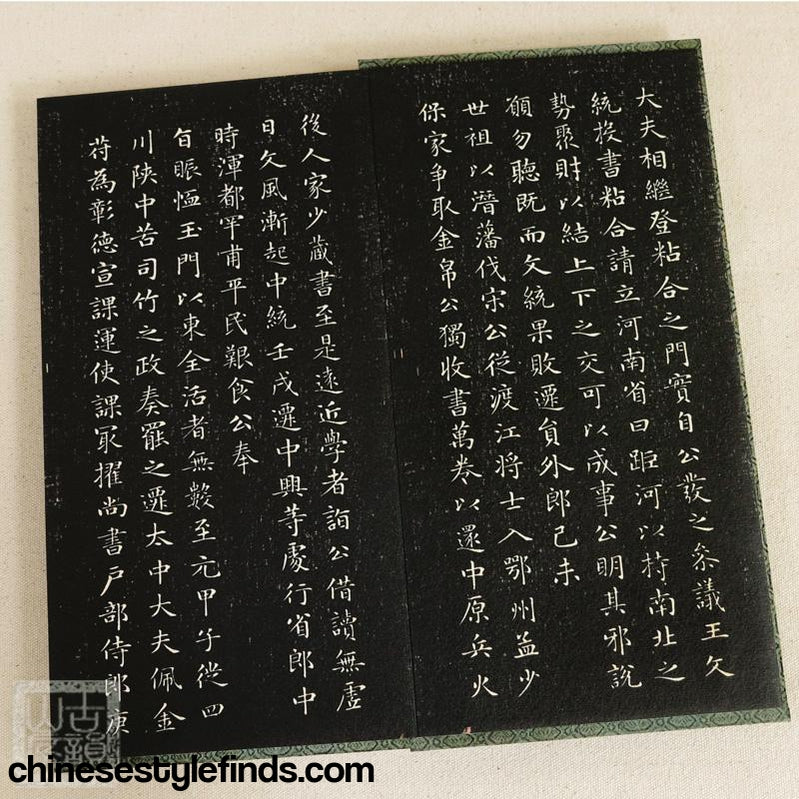 大夫相繼登粘合之門實自公發之參議王文
統投書粘合請立河南省曰距河以持南北之
勢聚財以結上下之交可以成事公明其邪說
願勿聽既而文統果敗遷員外郎己未
世祖以潛藩伐宋公從渡江將士入鄂州孟少
保家爭取金帛公獨收書萬卷以還中原兵火
後人家少藏書至是遠近學者詣公借讀無虛
日文風漸起中統壬戌遷中興等處行省郎中
時渾都罕甫平民艱食公奉
旨賑恤玉門以東全活者無數至元甲子從四
川陝中苦司竹之政奏罷之遷太中大夫佩金
符為彰德宣課運使課最擢尚書戶部侍郎庚
chinesestylefinds.com